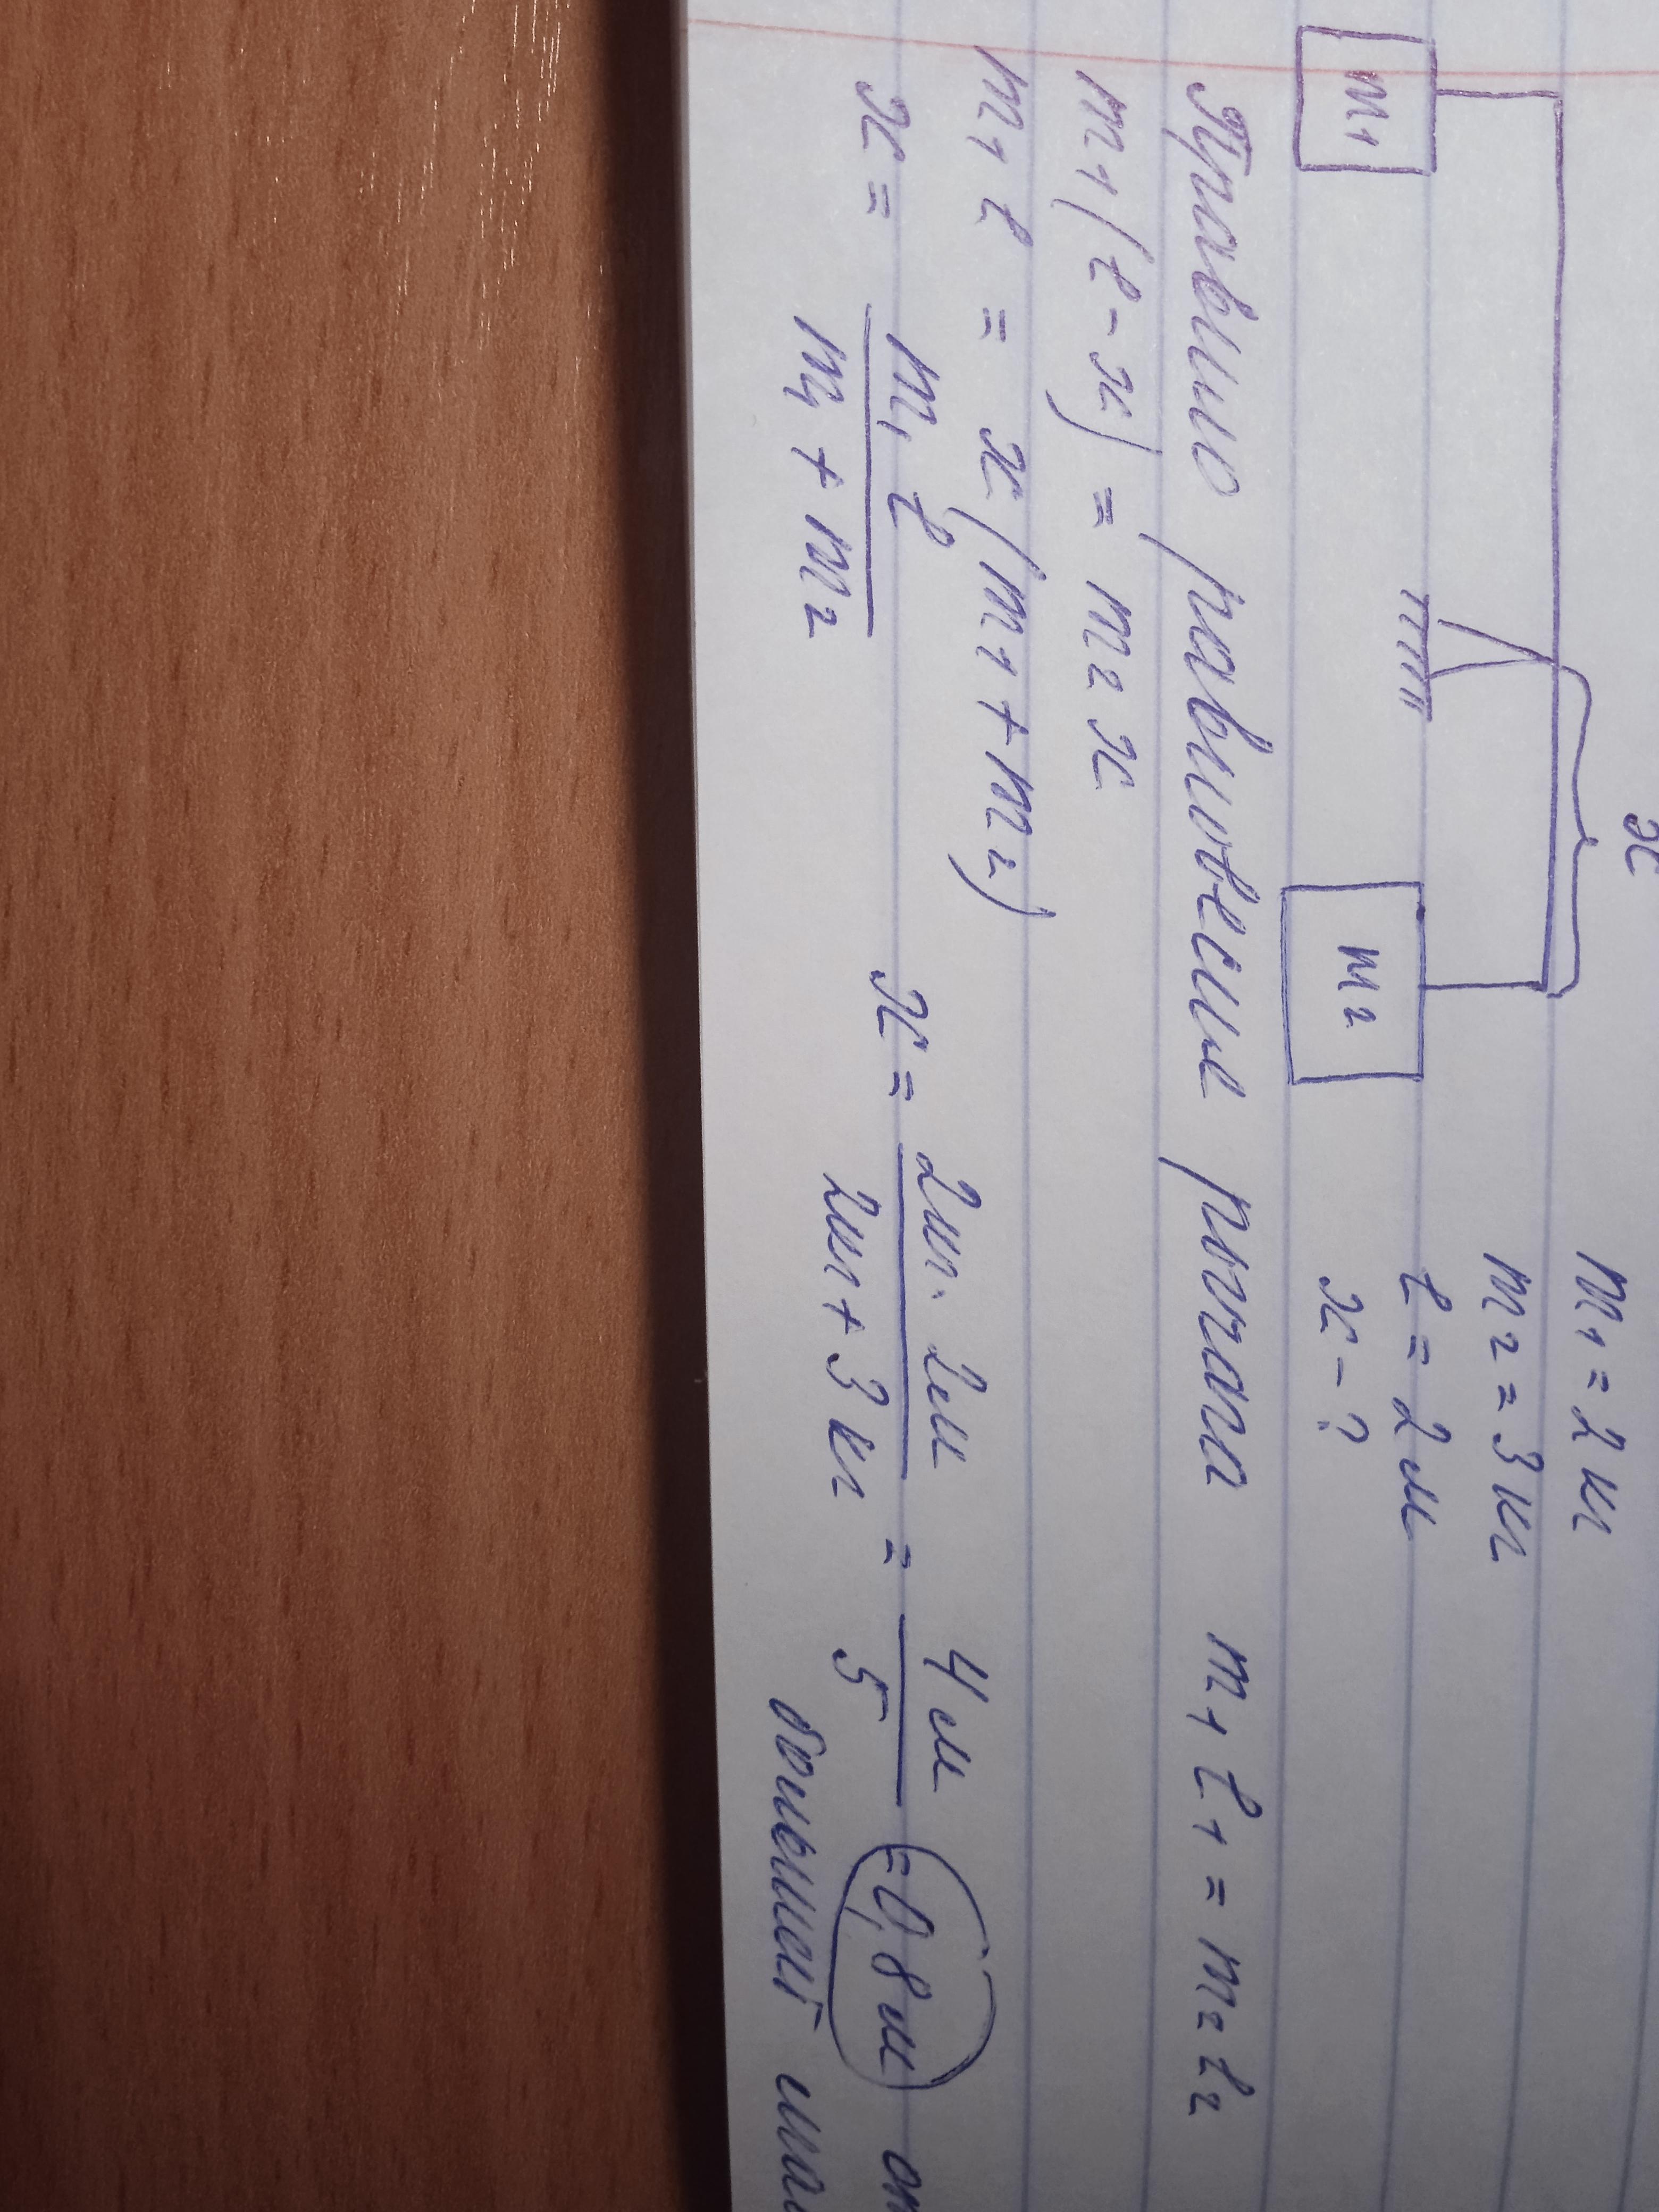 x
m₁ m₂
m₁ = 2 кг
m₂ = 3 кг
ℓ = 2 м
x - ?
Правило равновесия рычага m₁ ℓ₁ = m₂ ℓ₂
m₁(ℓ - x) = m₂ x
m₁ ℓ = x (m₁ + m₂)
x = m₁ ℓ / m₁ + m₂ x = 2кг · 2м / 2кг + 3 кг = 4 м / 5 = 0,8 м от
большей